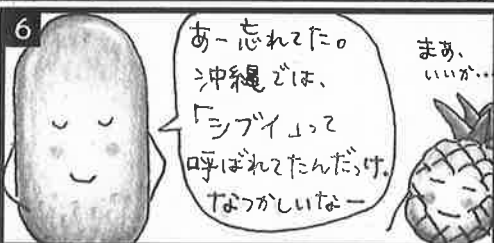 6
あー忘れてた。
沖縄では、
「シブイ」って
呼ばれてたんだっけ。
なつかしいなー
まあ、
いいか…